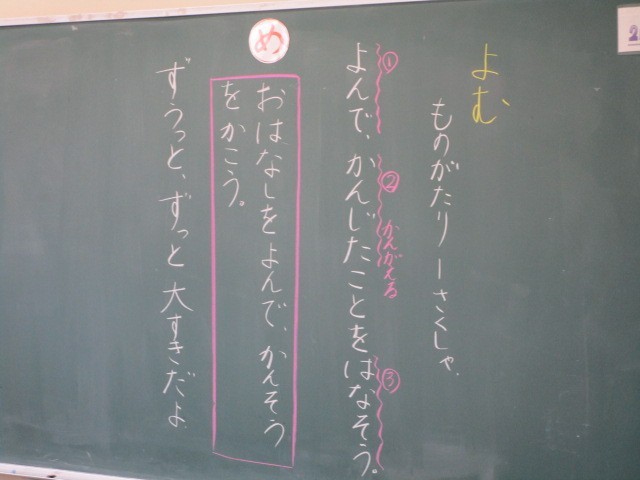 よむ
ものがたりーさくしゃ
①
よんで、かんじたことをはなそう。
②
かんがえる
③
め
おはなしをよんで、かんそう
をかこう。
ずうっと、ずっと大すきだよ